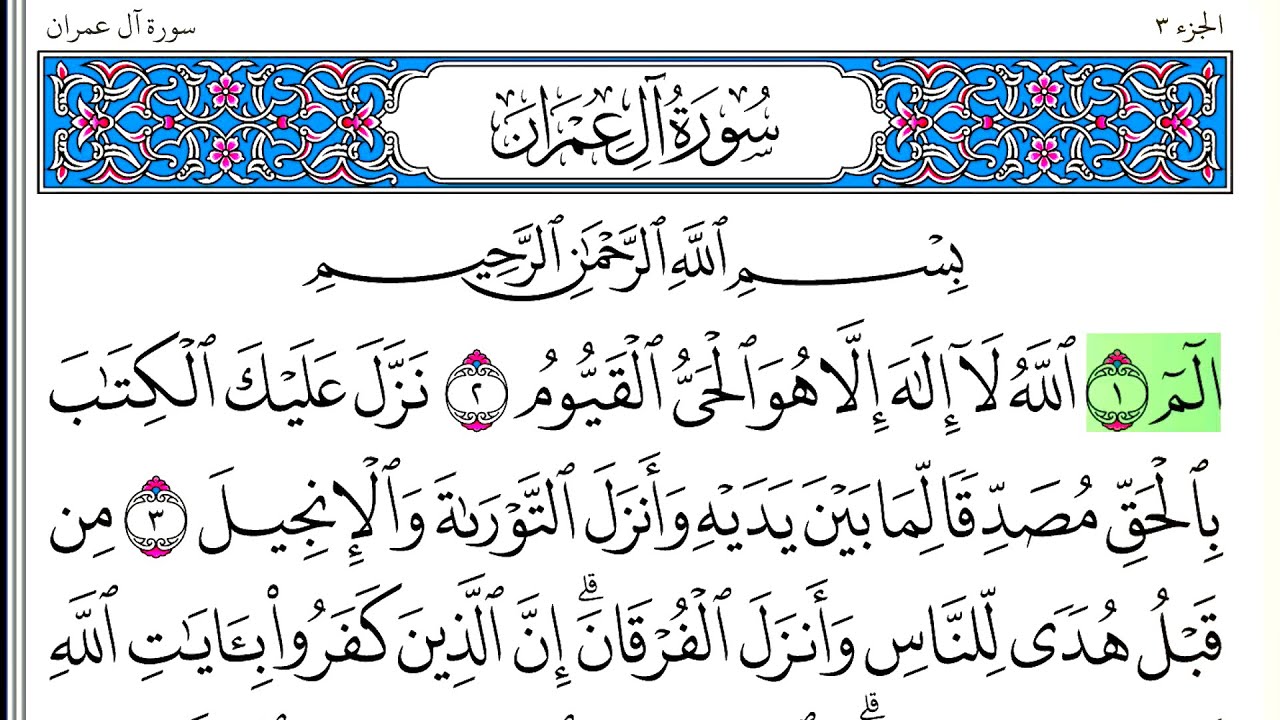 الجزء ٣
سورة آل عمران
سُورَةُ آلِ عِمْرَان
بِسْمِ ٱللَّهِ ٱلرَّحْمَٰنِ ٱلرَّحِيمِ
الٓمٓ ١ ٱللَّهُ لَآ إِلَٰهَ إِلَّا هُوَ ٱلْحَىُّ ٱلْقَيُّومُ ٢ نَزَّلَ عَلَيْكَ ٱلْكِتَٰبَ
بِٱلْحَقِّ مُصَدِّقًا لِّمَا بَيْنَ يَدَيْهِ وَأَنزَلَ ٱلتَّوْرَىٰةَ وَٱلْإِنجِيلَ ٣ مِن
قَبْلُ هُدًى لِّلنَّاسِ وَأَنزَلَ ٱلْفُرْقَانَ ۗ إِنَّ ٱلَّذِينَ كَفَرُوا۟ بِـَٔايَٰتِ ٱللَّهِ